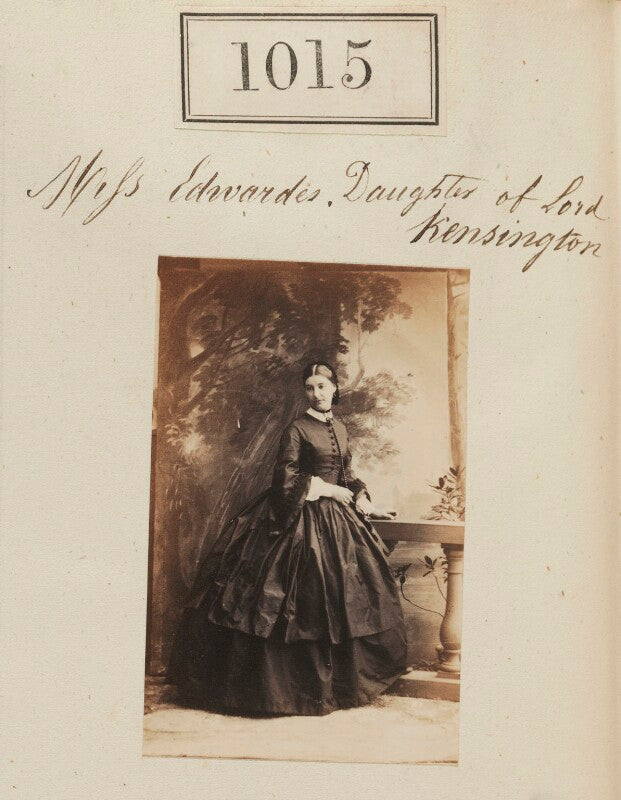 1015
Miss Edwardes. Daughter of Lord
Kensington